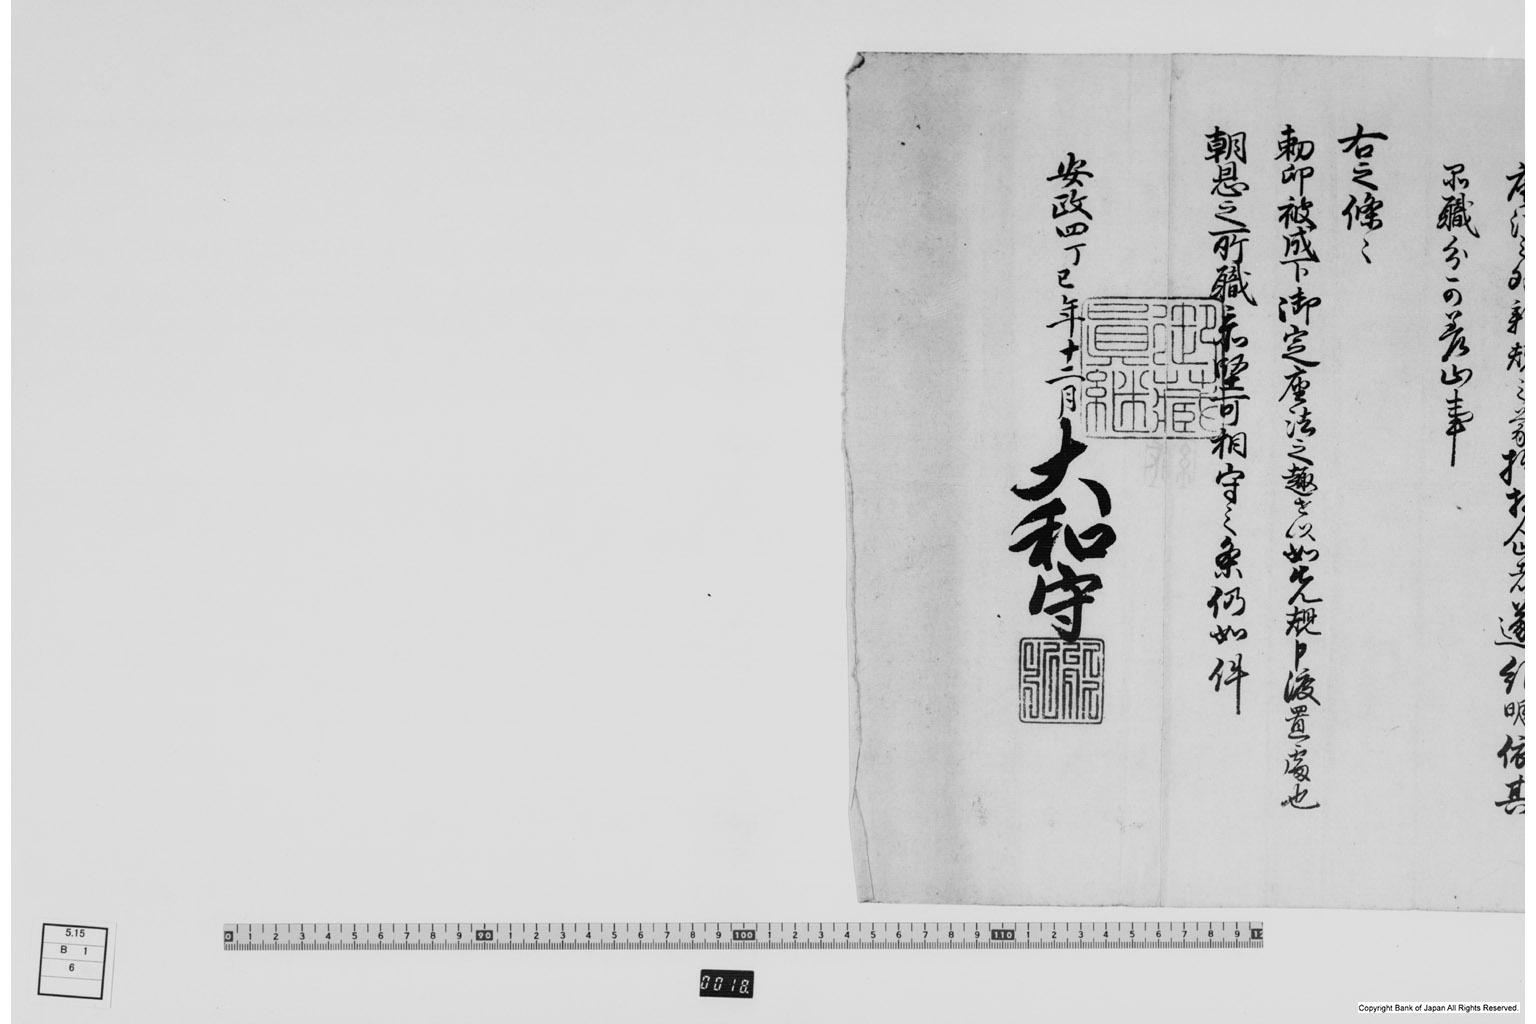 遂糺明依其
品職分可差止事
右之條々
勅印被成下御定座法之趣を以如先規申渡置處也
朝恩之所職永堅可相守之条仍如件
安政四丁巳年十二月
大和守
眞継
5.15
B 1
6
0 1 2 3 4 5 6 7 8 9 90 1 2 3 4 5 6 7 8 9 100 1 2 3 4 5 6 7 8 9 110 1 2 3 4 5 6 7 8 9 12
0018.
Copyright Bank of Japan All Rights Reserved.